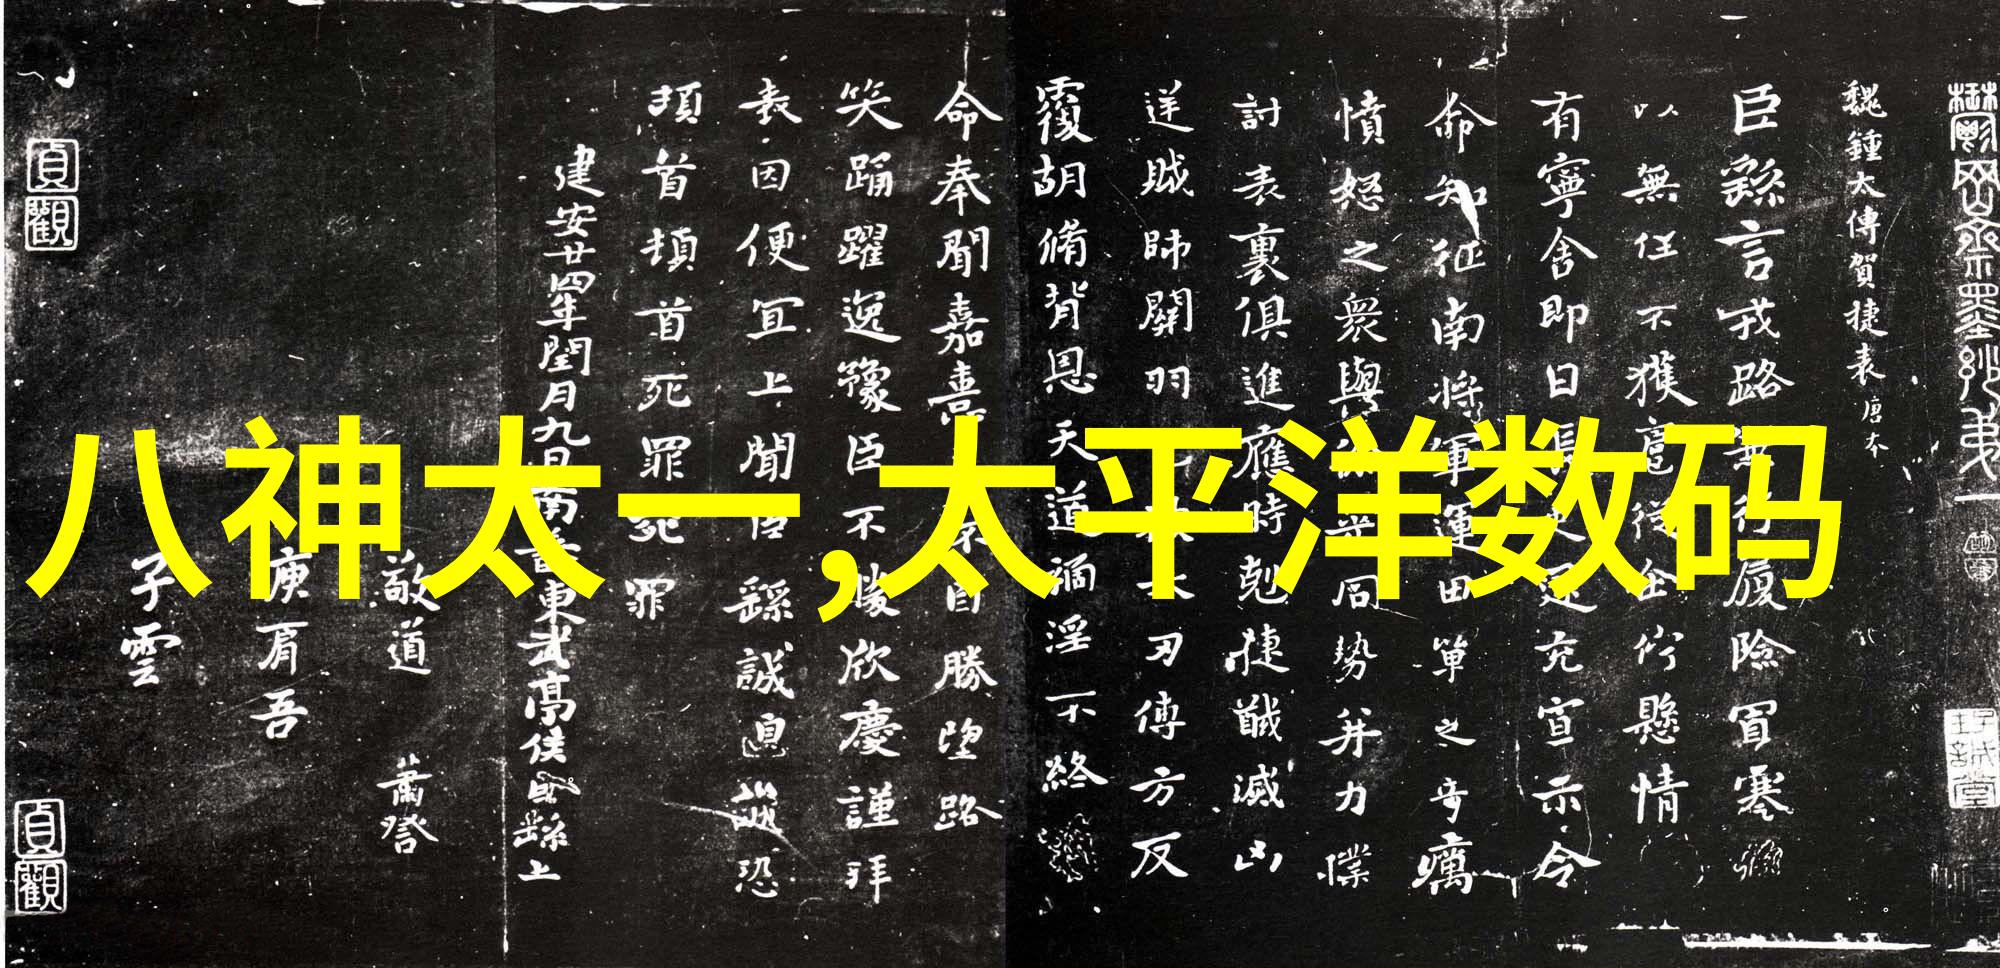 鬱岡齋墨妙第一
魏鍾太傅賀捷表 唐本
臣繇言戎路行履險冒寒
以無任不獲扈從企佇懸情
有寧舍即日長充宣示令
命知征南將軍運田單之奇厲
憤怒之衆與同勢并力撲
討表裏俱進應時剋捷馘滅凶
逆賊帥關羽矢刃傅方反
覆胡脩背恩天道禍淫不終
命奉聞嘉憙不自勝望路
笑踊躍逸豫臣不勝欣慶謹拜
表因便宜上聞臣繇誠惶誠恐
頓首頓首死罪死罪
建安廿四年閏月九日南蕃東武亭侯臣繇上
敬道
庚肩吾
子雲
貞觀
貞觀
八神太一,太平洋数码